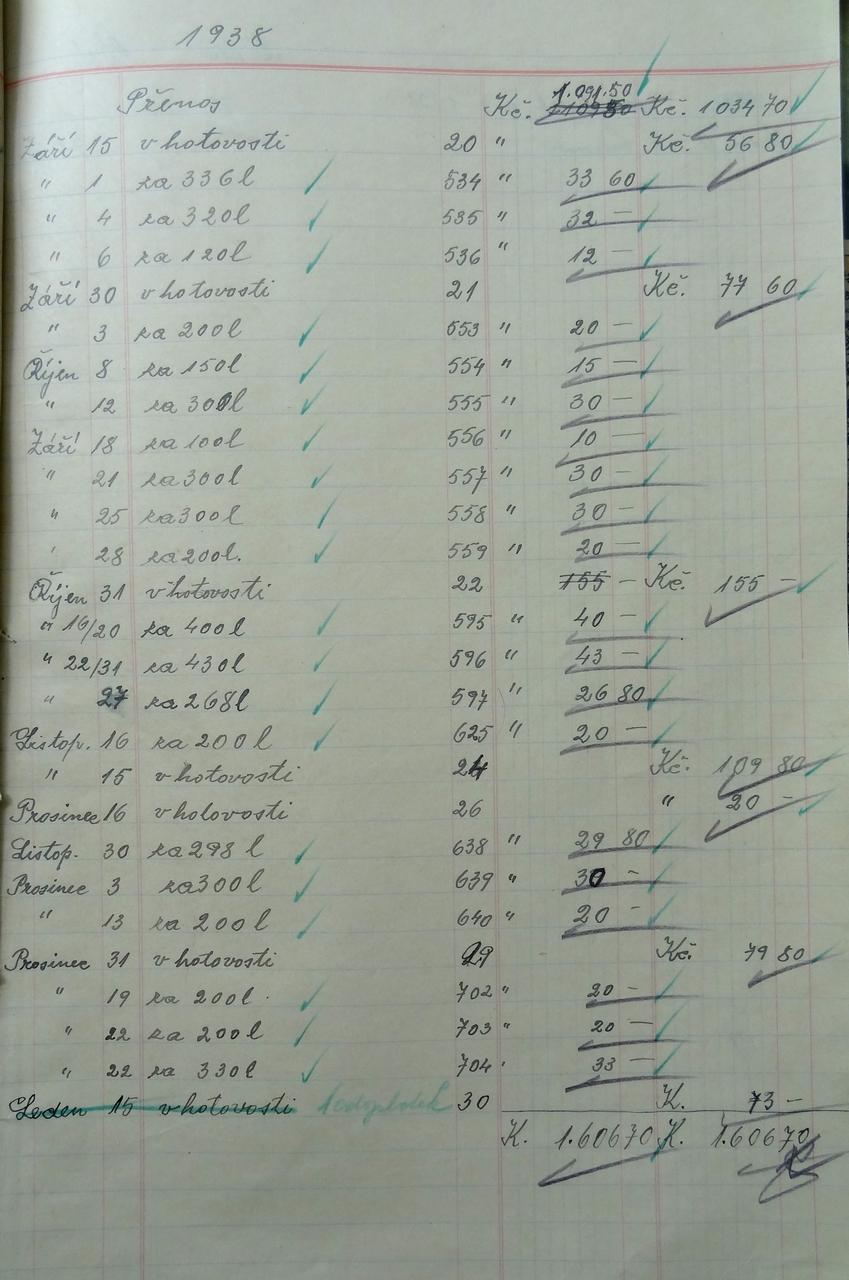 1938
Přenos Kč. 1.091.50 Kč. 1034 70
Září 15 v hotovosti 20 " Kč. 56 80
" 1 za 336 l 534 " 33 60
" 4 za 320 l 535 " 32 —
" 6 za 120 l 536 " 12 —
Září 30 v hotovosti 21 Kč. 77 60
" 3 za 200 l 553 " 20 —
Říjen 8 za 150 l 554 " 15 —
" 12 za 300 l 555 " 30 —
Září 18 za 100 l 556 " 10 —
" 21 za 300 l 557 " 30 —
" 25 za 300 l 558 " 30 —
" 28 za 200 l. 559 " 20 —
Říjen 31 v hotovosti 22 155 — Kč. 155 —
" 16/20 za 400 l 595 " 40 —
" 22/31 za 430 l 596 " 43 —
" 27 za 268 l 597 " 26 80
Listop. 16 za 200 l 625 " 20 —
" 15 v hotovosti 24 Kč. 109 80
Prosinec 16 v holovosti 26 " 20 —
Listop. 30 za 298 l 638 " 29 80
Prosinec 3 za 300 l 639 " 30 —
" 13 za 200 l 640 " 20 —
Prosinec 31 v hotovosti 29 Kč. 79 80
" 19 za 200 l. 702 " 20 —
" 22 za 200 l 703 " 20 —
" 22 za 330 l 704 " 33 —
Leden 15 v hotovosti 30 K. 73 —
K. 1.606 70 K. 1.606 70